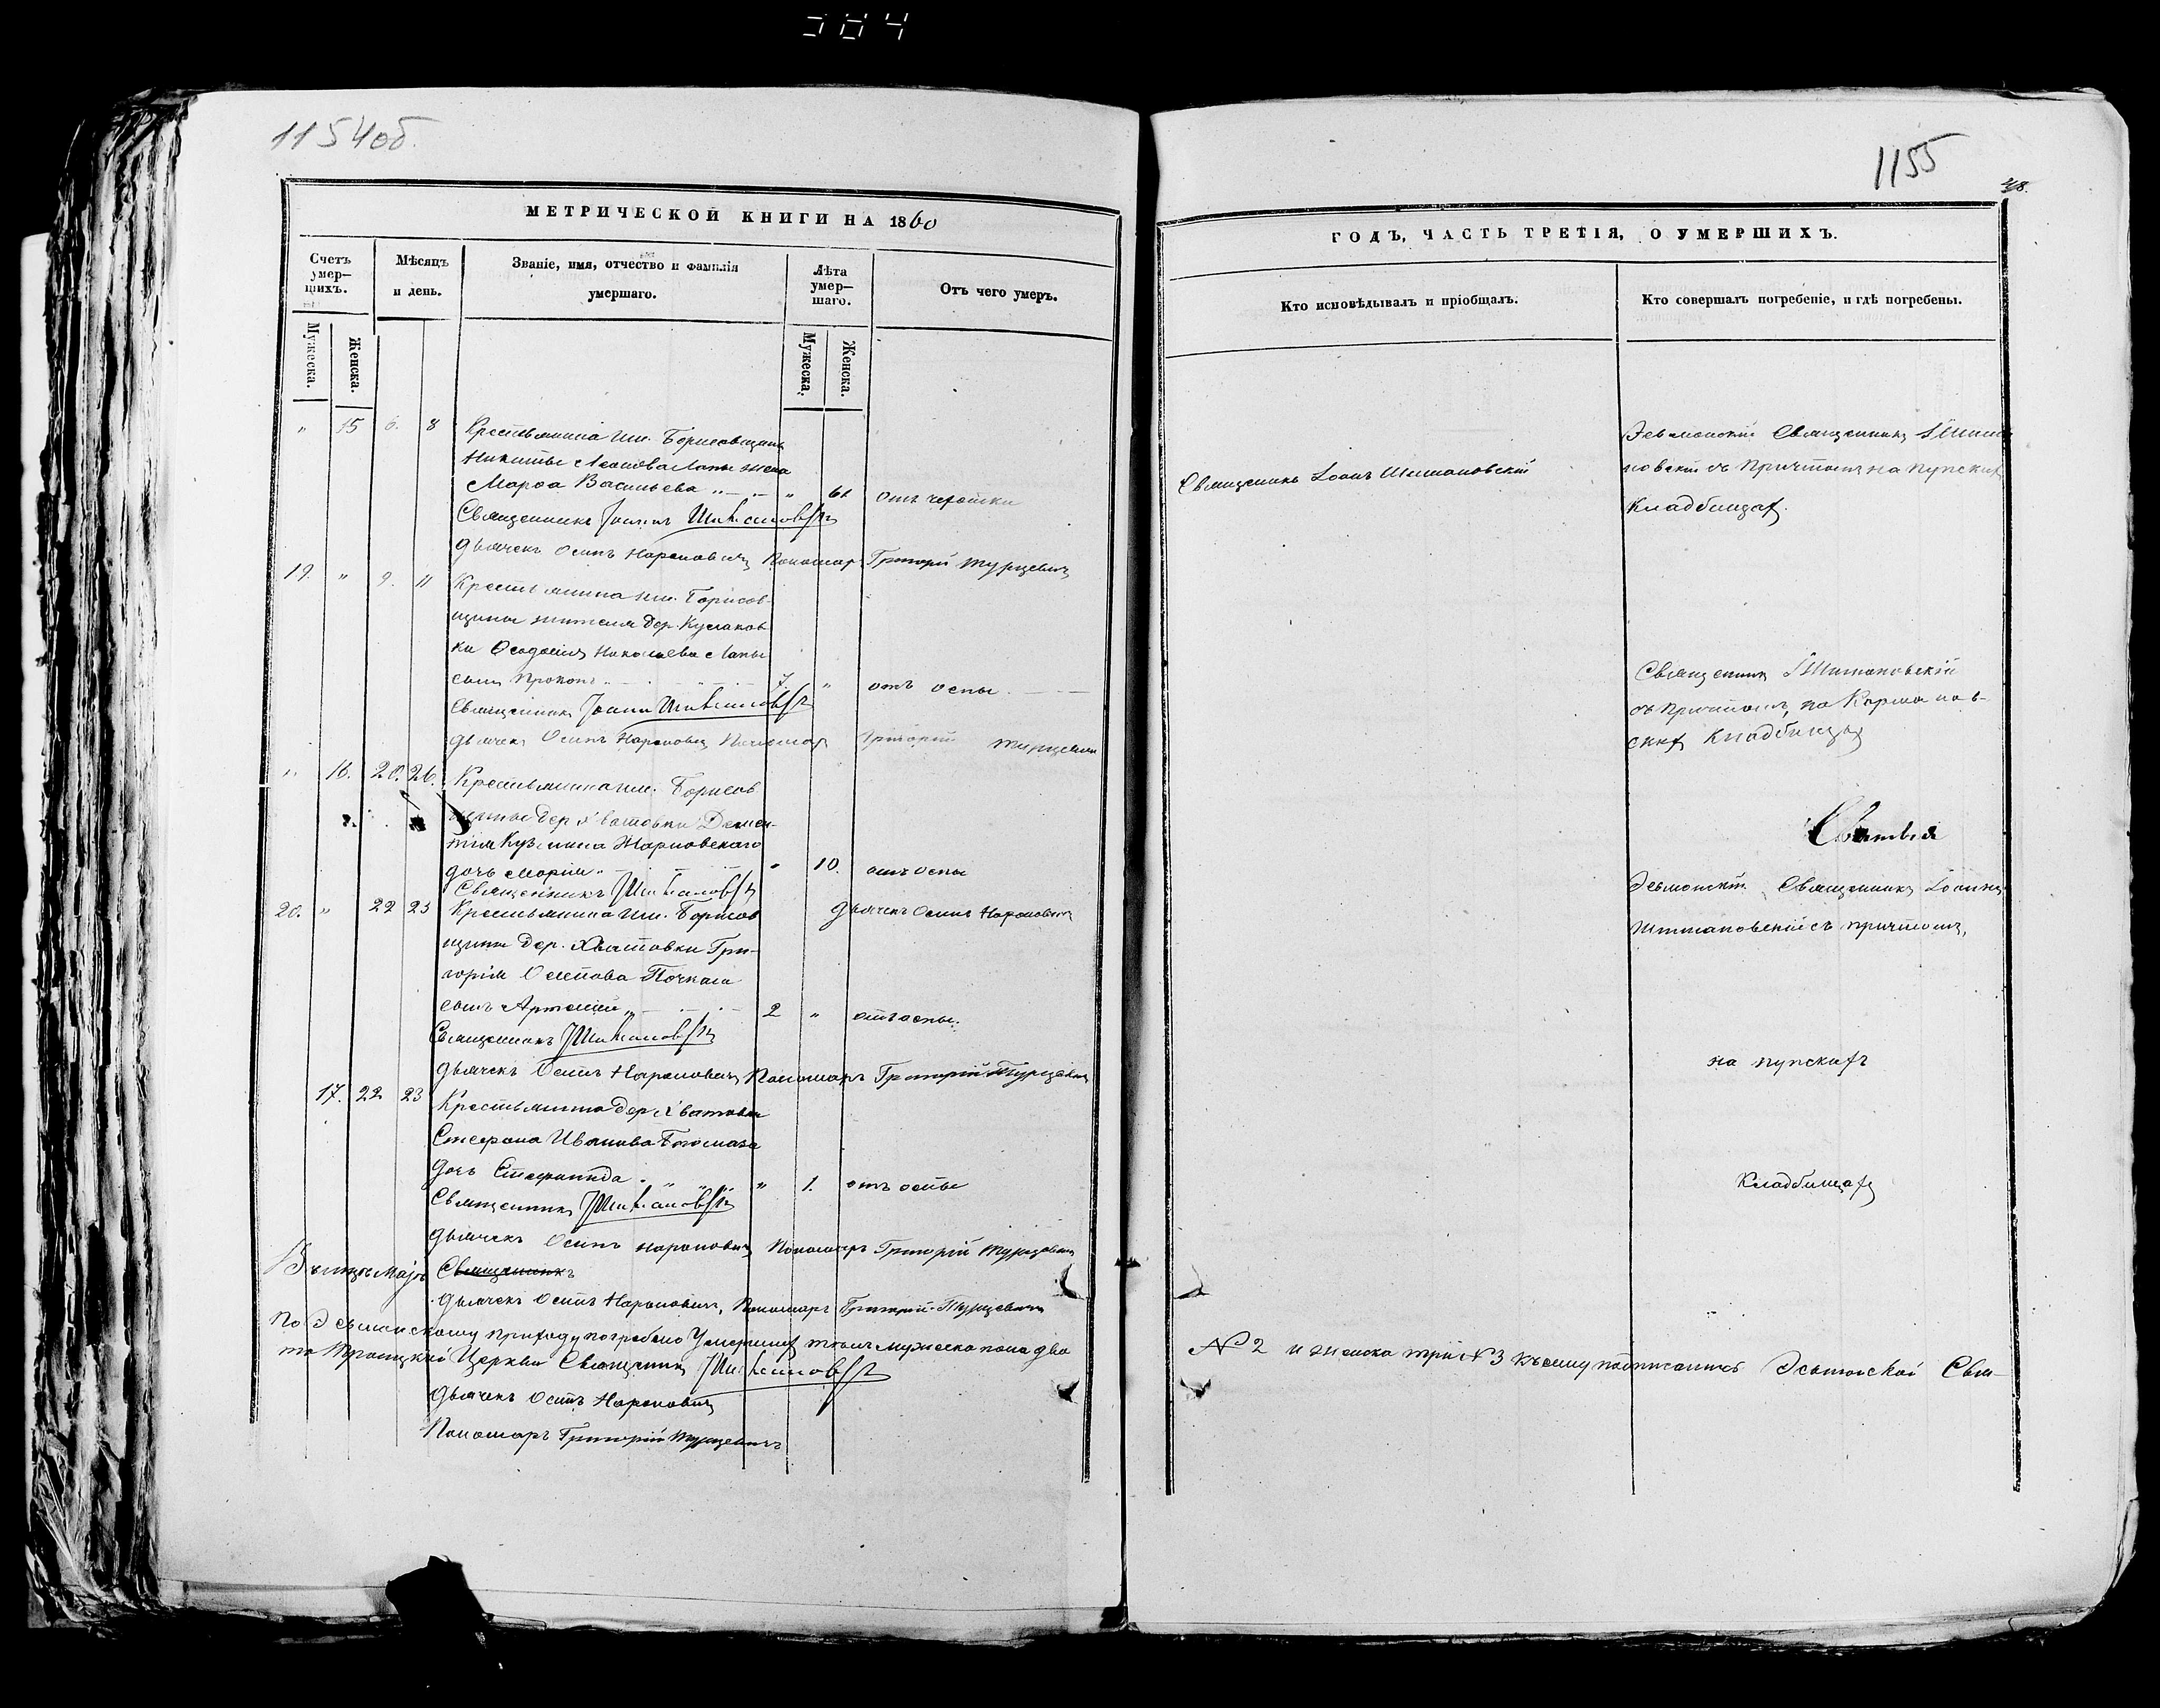 1154 об.
МЕТРИЧЕСКОЙ КНИГИ НА 1860
Счетъ умер-шихъ.
Мѣсяцъ и день.
Званіе, имя, отчество и фамилія умершаго.
Лѣта умер-шаго.
Отъ чего умеръ.
Мужеска.
Женска.
Мужеска.
Женска.
" 15 6. 8 Крестьянина им. Борисовщины
Никиты Леонова Лапы жена
Марѳа Васильева " 61 отъ чахотки
Священникъ Іоаннъ Шимановскій
Дьячекъ Осипъ Нароновичъ Пономарь Григорій Турцевичъ
19. " 9. 11 Крестьянина им. Борисов-
щины жителя дер. Кулаков
ки Николаева Лапы
сынъ Прокопъ 7. " отъ оспы
Священникъ Іоаннъ Шимановскій
Дьячекъ Осипъ Нароновичъ Пономарь Григорій Турцевичъ
" 16. 20. 26. Крестьянина им. Борисов
щины дер. Хватовки Демен-
тія Кузмина Жарновскаго
дочь Марія " 10. отъ оспы
Священникъ І Шимановскій
Дьячекъ Осипъ Нароновичъ
20. " 22 23 Крестьянина им. Борисов
щины дер. Хватовки Гри-
горія Осипова Почкая
сынъ Артемій 2 " отъ оспы.
Священникъ І Шимановскій
Дьячекъ Осипъ Нароновичъ Пономарь Григорій Турцевичъ
17. 22 23 Крестьянина дер. Хватовки
Стефана Иванова
дочь Стефанида " 1. отъ оспы
Священникъ І Шимановскій
Дьячекъ Осипъ Нароновичъ Пономарь Григорій Турцевичъ
Священникъ
Дьячекъ Осипъ Нароновичъ, Пономарь Григорій Турцевичъ
По приходу погребено Умершихъ мужеска пола два
Троицкой Церкви Священникъ І Шимановскій
Дьячекъ Осипъ Нароновичъ
Пономарь Григорій Турцевичъ
1155
ГОДЪ, ЧАСТЬ ТРЕТІЯ, О УМЕРШИХЪ.
Кто исповѣдывалъ и пріобщалъ.
Кто совершалъ погребеніе, и гдѣ погребены.
Священникъ Іоаннъ Шимановскій
Эсьмонскій Священникъ І Шима
новскій съ Причтомъ на Пупскихъ
Кладбищахъ.
Священникъ І Шимановскій
съ причтомъ, на
скихъ Кладбищахъ
Эсьмонскій Священникъ Іоаннъ
Шимановскій съ причтомъ,
на пупскихъ
Кладбищахъ
№ 2 и женска три № 3 къ сему подписались Эсьмонской Свя-